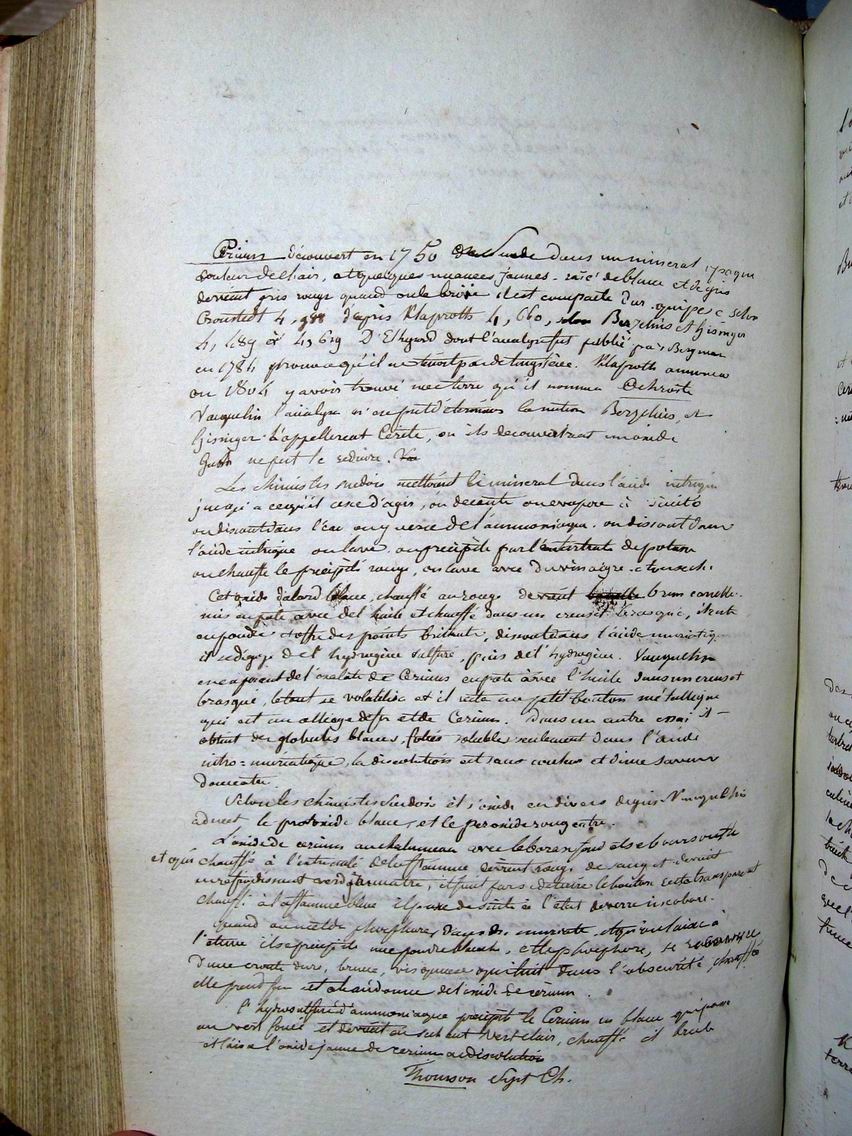 Cerium découvert en 1750 en Suede dans un mineral opaque
couleur de chair, et quelques nuances jaunes - raié de blanc et de gris
devient gris rouge quand on le broie il est compacte Sa pese selon
Cronstedt 4,988 depris Klaproth 4,660, selon Berzelius et Hisinger
4,489 à 4,619 D'Elhuyard dont l'analyse fut publié par Bergman
en 1784 prouva qu'il ne tient pas de tungstene. Klaproth annonca
en 1804 y avoir trouvé une terre qu'il nomma Ochroite
Vauquelin l'analysa n'en put déterminer la nature Berzelius, et
Hisinger l'appellerent Cerite, où ils decouvrirent un oxide
Gahn ne put le reduire.
Les chimistes suedois mettent le mineral dans l'acide nitrique
jusqu'a ce qu'il cesse d'agir, on decante on evapore à siccité
on dissout dans l'eau on y verse de l'ammoniaque. on dissout dans
l'acide nitrique on lave, on précipite par le tartrate de potasse
on chauffe le précipité rouge, on lave avec du vinaigre et on seche.
Cet oxide d'abord blanc, chauffé au rouge devient brun canelle.
mis en pate avec de l'huile et chauffé dans un creuset brasqué, il reste
en poudre et offre des points brillants, dissout dans l'acide muriatiq.
il se dégage de l'hydrogène sulfuré, puis de l'hydrogène. Vauquelin
en exposant de l'oxalate de Cerium en pate avec l'huile dans un creuset
brasqué, le tout se volatilisa et il resta un petit bouton métallique
qui est un alliage de fer et de Cerium. Dans un autre essai il
obtint des globules blancs, foliés solubles seulement dans l'acide
nitro=muriatique, la dissolution est sans couleur et d'une saveur
douceatre.
Selon les chimistes suedois il s'oxide en divers degrés Vauquelin
admet le protoxide blanc, et le peroxide rougeatre.
L'oxide de cerium au chalumeau avec le borax fond et se boursouffle
et après chauffé à l'extremité de la flamme devient rouge de sang et devient
en refroidissant verd jaunatre, et finit par se detruire le bouton reste transparent
chauffé à la flamme bleue il passe de suite à l'état de verre incolore.
quand on met du phosphore dans du muriate
l'etuve il se précipite une poudre blanche, et le phosphore, se recouvre
d'une croute dure, brune, visqueuse qui luit dans l'obscurité, chauffée
elle prend feu et abandonne de l'oxide de cerium.
l'hydrosulfure d'ammoniaque précipite le Cerium en blanc qui passe
au vert foncé et devient en sechant vert clair, chauffé il brule
et laisse l'oxide jaune de cerium
Thomson Syst Ch.